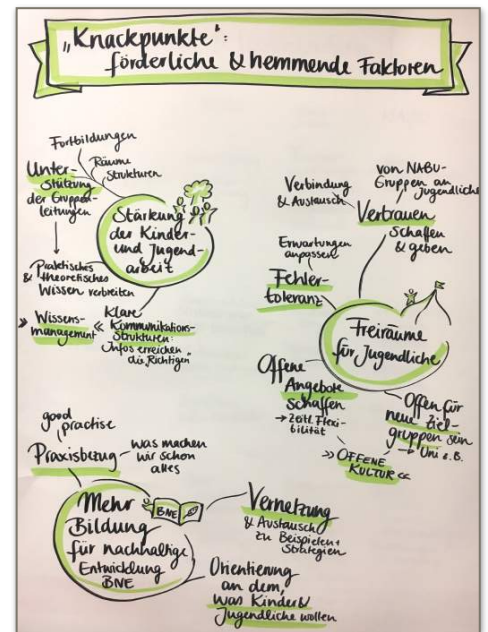 „Knackpunkte":
förderliche & hemmende Faktoren
Fortbildungen
Räume
Strukturen
Unter-
stützung
der Gruppen-
leitungen
Stärkung
der Kinder-
und Jugend-
arbeit
Praktisches
& theoretisches
Wissen verbreiten
» Wissens-
management «
Klare
Kommunikations-
strukturen:
„Infos erreichen
die Richtigen"
von NABU-
Gruppen an
Jugendliche
Verbindung
& Austausch
Vertrauen
schaffen
& geben
Erwartungen
anpassen
Fehler-
toleranz
Freiräume
für Jugendliche
Offene
Angebote
schaffen
→ zeitl. Flexi-
bilität
Offen für
neue Ziel-
gruppen sein
→ Uni z.B.
»OFFENE
KULTUR«
good
practise
Praxisbezug
was machen
wir schon
alles
Mehr
Bildung
für nachhaltige
Entwicklung
BNE
BNE
Vernetzung
& Austausch
zu Beispielen +
Strategien
Orientierung
an dem,
was Kinder &
Jugendliche wollen